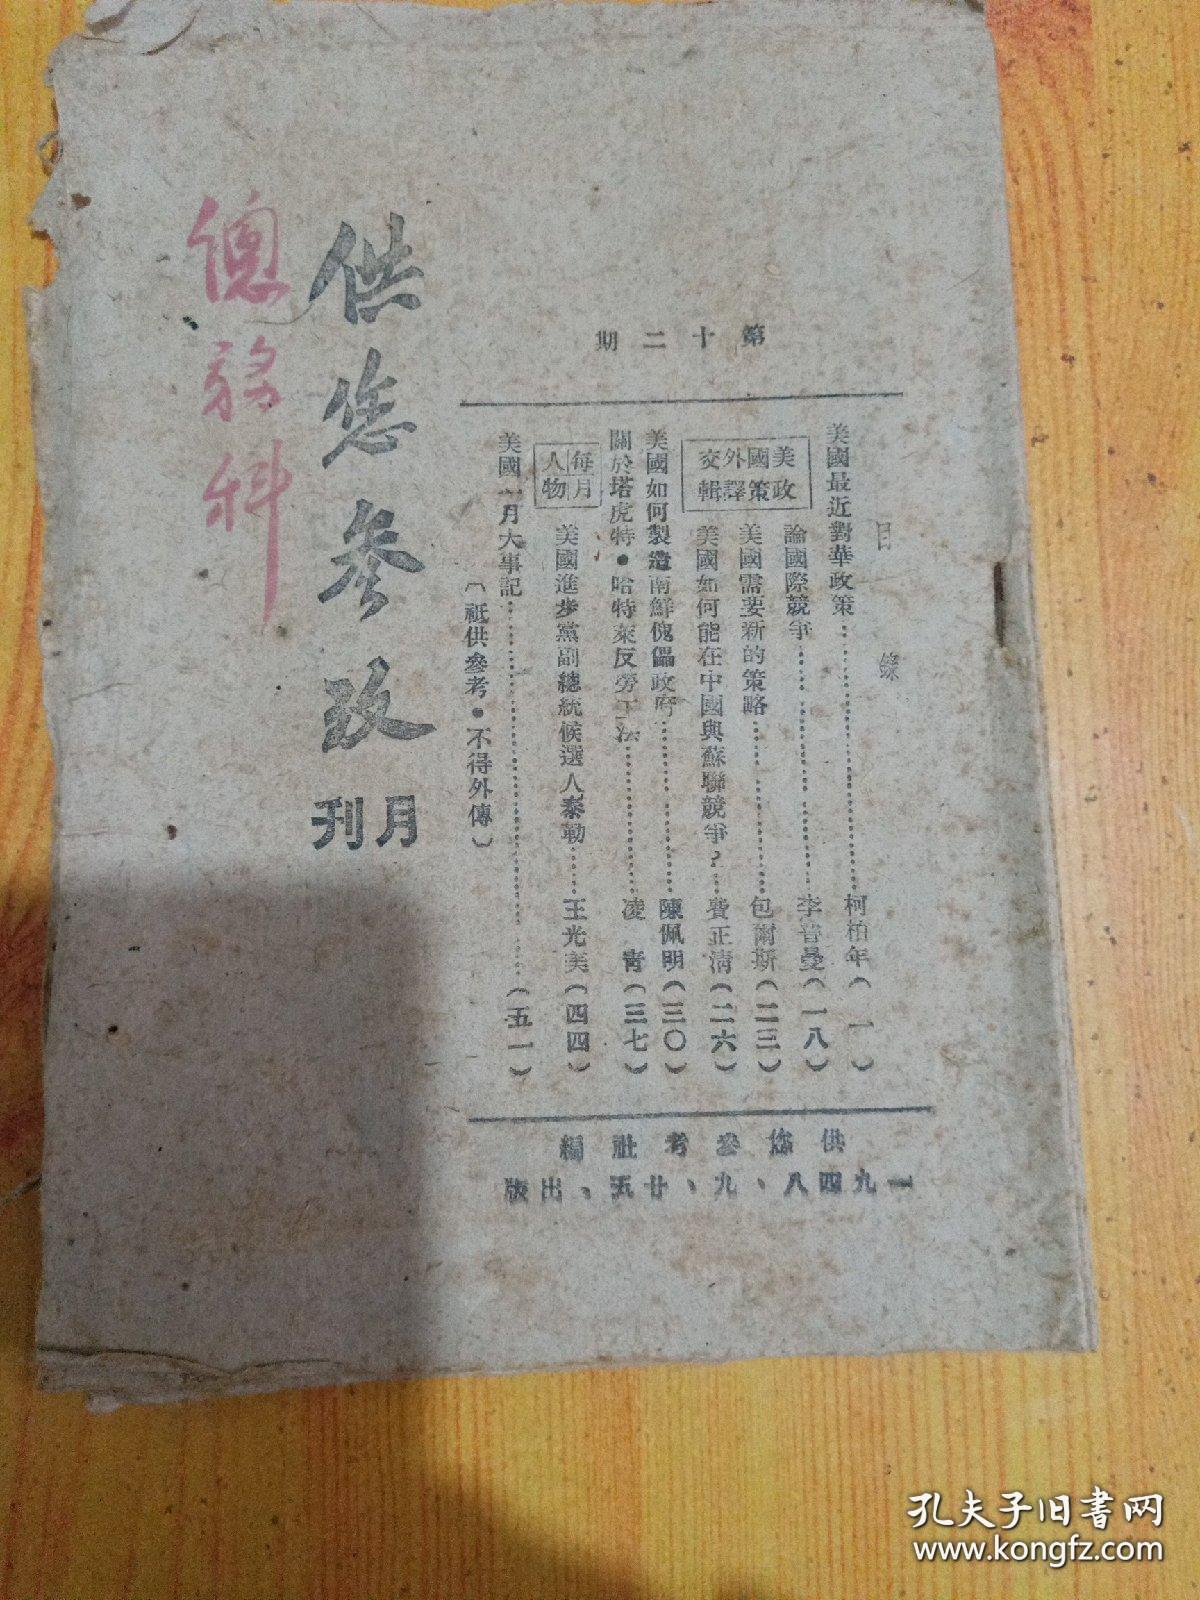 第十二期
目錄
美國最近對華政策……柯柏年(一)
美國外交政策譯輯
論國際競爭……李普曼(一八)
美國需要新的策略……包爾斯(二三)
美國如何能在中國與蘇聯競爭?……費正清(二六)
美國如何製造南鮮傀儡政府……陳佩明(三〇)
關於塔虎特•哈特萊反勞工法……凌青(三七)
每月人物
美國進步黨副總統候選人泰勒……王光美(四四)
美國一月大事記……(五一)
(祇供參考•不得外傳)
供您參考社編
一九四八、九、廿五、出版
供您參攷
月刊
總務科
孔夫子旧书网
www.kongfz.com